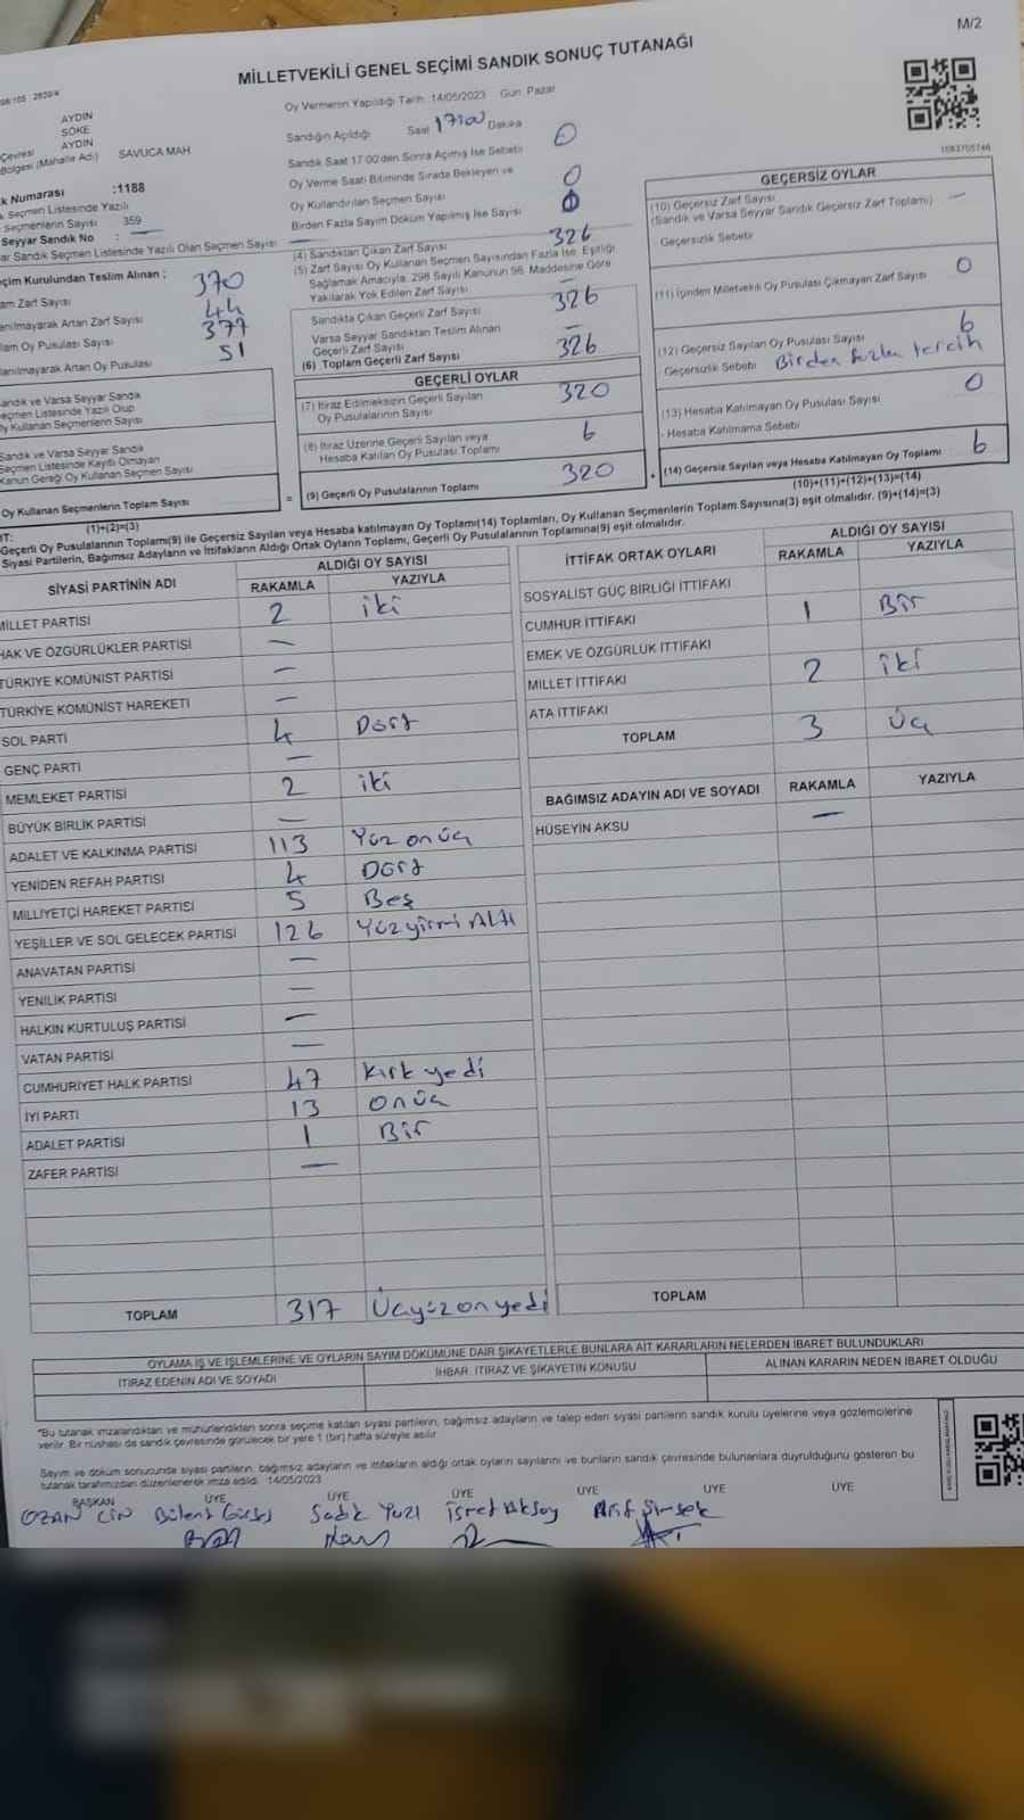 M/2
MİLLETVEKİLİ GENEL SEÇİMİ SANDIK SONUÇ TUTANAĞI
AYDIN
SÖKE
AYDIN
Çevresi
Bölgesi (Mahalle Adı) SAVUCA MAH
Numarası :1188
Seçmen Listesinde Yazılı
Seçmenlerin Sayısı 359
Seyyar Sandık No : —
Sandık Seçmen Listesinde Yazılı Olan Seçmen Sayısı —
Seçim Kurulundan Teslim Alınan :
Zarf Sayısı 370
Artan Zarf Sayısı 44
Oy Pusulası Sayısı 377
Artan Oy Pusulası 51
Sandık ve Varsa Seyyar Sandık
Seçmen Listesinde Yazılı Olup
Oy Kullanan Seçmenlerin Sayısı
Sandık ve Varsa Seyyar Sandık
Seçmen Listesinde Kayıtlı Olmayan
Kanun Gereği Oy Kullanan Seçmen Sayısı
Oy Kullanan Seçmenlerin Toplam Sayısı
(1)+(2)=(3)
Oy Vermenin Yapıldığı Tarih :14/05/2023 Gün: Pazar
Sandığın Açıldığı Saat 17:00 Dakika
Sandık Saat 17:00'den Sonra Açılmış İse Sebebi 0
Oy Verme Saati Bitiminde Sırada Bekleyen ve
Oy Kullandırılan Seçmen Sayısı 0
Birden Fazla Sayım Döküm Yapılmış İse Sayısı 0
(4) Sandıktan Çıkan Zarf Sayısı 326
(5) Zarf Sayısı Oy Kullanan Seçmen Sayısından Fazla İse, Eşitliği
Sağlamak Amacıyla, 298 Sayılı Kanunun 98. Maddesine Göre
Yakılarak Yok Edilen Zarf Sayısı —
Sandıkta Çıkan Geçerli Zarf Sayısı 326
Varsa Seyyar Sandıktan Teslim Alınan
Geçerli Zarf Sayısı —
(6) Toplam Geçerli Zarf Sayısı 326
GEÇERLİ OYLAR
(7) İtiraz Edilmeksizin Geçerli Sayılan
Oy Pusulalarının Sayısı 320
(8) İtiraz Üzerine Geçerli Sayılan veya
Hesaba Katılan Oy Pusulası Toplamı 6
= (9) Geçerli Oy Pusulalarının Toplamı 320 +
1083705746
GEÇERSİZ OYLAR
(10) Geçersiz Zarf Sayısı
(Sandık ve Varsa Seyyar Sandık Geçersiz Zarf Toplamı) —
Geçersizlik Sebebi
(11) İçinden Milletvekili Oy Pusulası Çıkmayan Zarf Sayısı 0
(12) Geçersiz Sayılan Oy Pusulası Sayısı 6
Geçersizlik Sebebi Birden fazla tercih
(13) Hesaba Katılmayan Oy Pusulası Sayısı 0
- Hesaba Katılmama Sebebi
(14) Geçersiz Sayılan veya Hesaba Katılmayan Oy Toplamı 6
(10)+(11)+(12)+(13)=(14)
Geçerli Oy Pusulalarının Toplamı(9) ile Geçersiz Sayılan veya Hesaba katılmayan Oy Toplamı(14) Toplamları, Oy Kullanan Seçmenlerin Toplam Sayısına(3) eşit olmalıdır. (9)+(14)=(3)
Siyasi Partilerin, Bağımsız Adayların ve İttifakların Aldığı Ortak Oyların Toplamı, Geçerli Oy Pusulalarının Toplamına(9) eşit olmalıdır.
SİYASİ PARTİNİN ADI ALDIĞI OY SAYISI
RAKAMLA YAZIYLA
MİLLET PARTİSİ 2 iki
HAK VE ÖZGÜRLÜKLER PARTİSİ —
TÜRKİYE KOMÜNİST PARTİSİ —
TÜRKİYE KOMÜNİST HAREKETİ —
SOL PARTİ 4 Dört
GENÇ PARTİ —
MEMLEKET PARTİSİ 2 iki
BÜYÜK BİRLİK PARTİSİ —
ADALET VE KALKINMA PARTİSİ 113 Yüz onüç
YENİDEN REFAH PARTİSİ 4 Dört
MİLLİYETÇİ HAREKET PARTİSİ 5 Beş
YEŞİLLER VE SOL GELECEK PARTİSİ 126 Yüzyirmi Altı
ANAVATAN PARTİSİ —
YENİLİK PARTİSİ —
HALKIN KURTULUŞ PARTİSİ —
VATAN PARTİSİ —
CUMHURİYET HALK PARTİSİ 47 Kırk yedi
İYİ PARTİ 13 Onüç
ADALET PARTİSİ 1 Bir
ZAFER PARTİSİ —
TOPLAM 317 Üçyüzonyedi
İTTİFAK ORTAK OYLARI ALDIĞI OY SAYISI
RAKAMLA YAZIYLA
SOSYALİST GÜÇ BİRLİĞİ İTTİFAKI
CUMHUR İTTİFAKI 1 Bir
EMEK VE ÖZGÜRLÜK İTTİFAKI
MİLLET İTTİFAKI 2 iki
ATA İTTİFAKI
TOPLAM 3 üç
BAĞIMSIZ ADAYIN ADI VE SOYADI RAKAMLA YAZIYLA
HÜSEYİN AKSU —
TOPLAM
OYLAMA İŞ VE İŞLEMLERİNE VE OYLARIN SAYIM DÖKÜMÜNE DAİR ŞİKAYETLERLE BUNLARA AİT KARARLARIN NELERDEN İBARET BULUNDUKLARI
İTİRAZ EDENİN ADI VE SOYADI İHBAR, İTİRAZ VE ŞİKAYETİN KONUSU ALINAN KARARIN NEDEN İBARET OLDUĞU
"Bu tutanak imzalandıktan ve mühürlendikten sonra seçime katılan siyasi partilerin, bağımsız adayların ve talep eden siyasi partilerin sandık kurulu üyelerine veya gözlemcilerine
verilir. Bir nüshası da sandık çevresinde görülecek bir yere 1 (bir) hafta süreyle asılır
Sayım ve döküm sonucunda siyasi partilerin, bağımsız adayların ve ittifakların aldığı ortak oyların sayılarını ve bunların sandık çevresinde bulunanlara duyrulduğunu gösteren bu
tutanak tarafımızdan düzenlenerek imza edildi. 14/05/2023
BAŞKAN ÜYE ÜYE ÜYE ÜYE ÜYE ÜYE
OZAN CİN Bülent Sadık Yuzi İsmet Aksoy Arif Şimşek